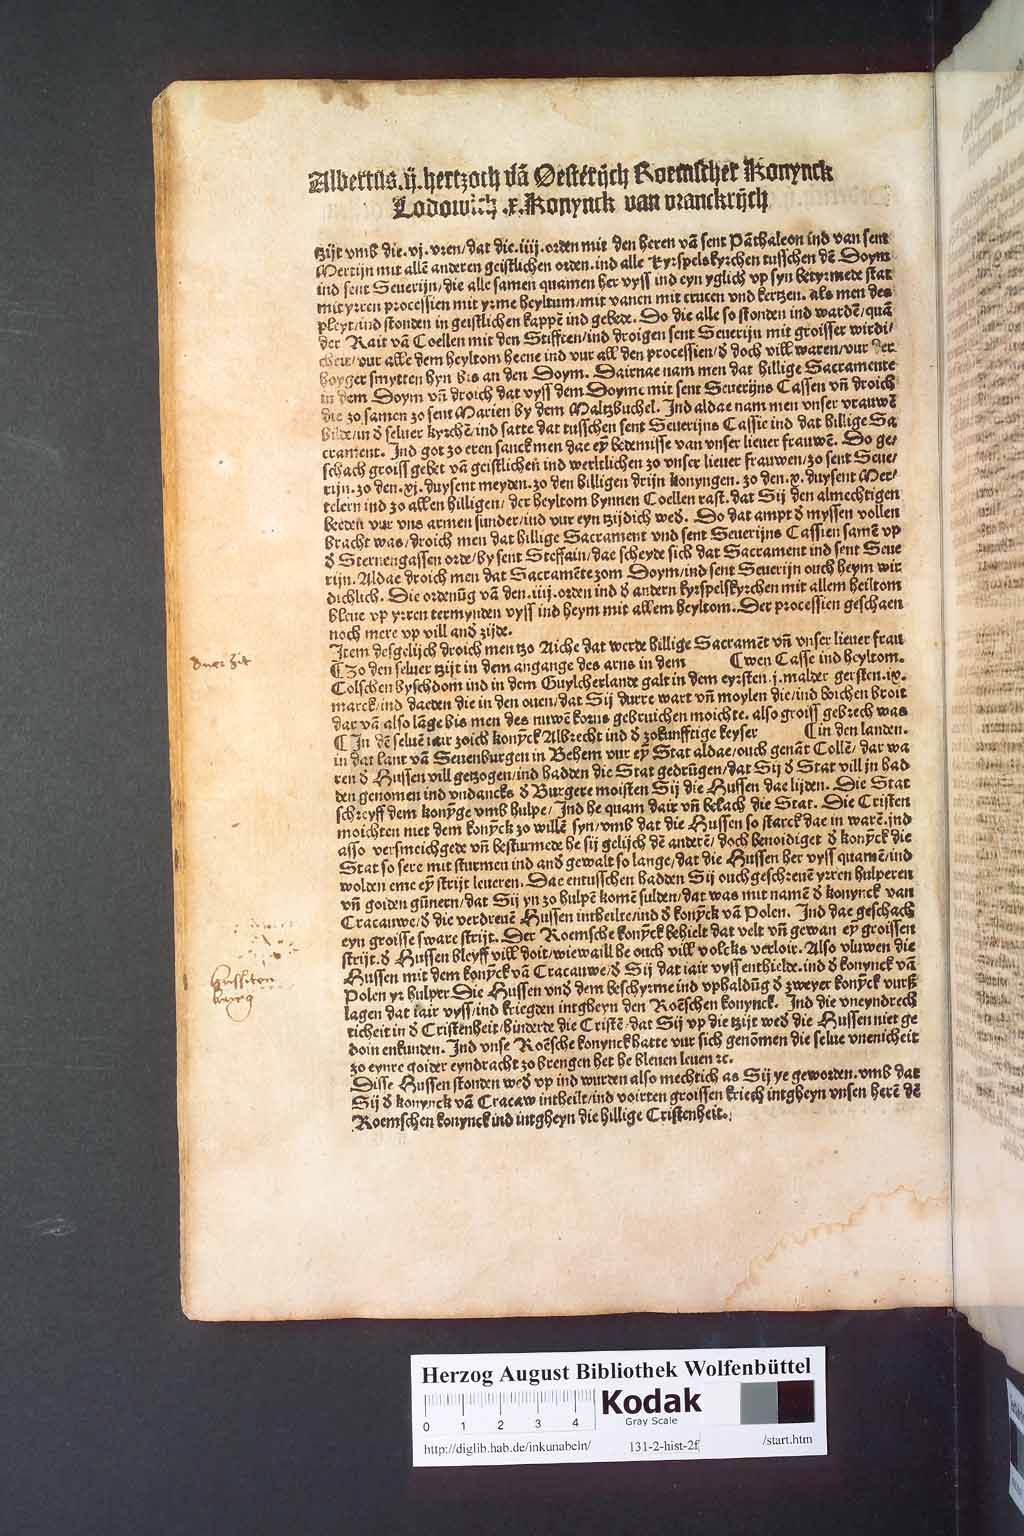 Albertus.ij.hertzoch vā Oestērijch Roemscher Konynck
Lodowich .x. Konynck van vranckrijch
tzijt vmb die.vj.vren/dat die.iiij.orden mit den heren vā sent Pāthaleon ind van sent
Mertijn mit allē anderen geistlichen orden.ind alle kyrspelskyrchen tusschen dē Doym
ind sent Seuerijn/die alle samen quamen her vyss ind eyn yglich vp syn betyrmede stat
mit yrren processien mit yrme heyltum/mit vanen mit crucen vnd kertzen. als men des
pleyt/ind stonden in geistlichen kappē ind gebede. Do die alle so stonden ind wardē/quā
der Rait vā Coellen mit den Stifften/ind droigen sent Seuerijn mit groisser wirdi/
cheit/vur alle dem heyltom heene ind vur all den processien/d doch vill waren/vur der
hoyger smytten hyn bis an den Doym. Dairnae nam men dat hillige Sacramente
in dem Doym vn̄ droich dat vyss dem Doyme mit sent Seuerijns Cassen vn̄ droich
die zo samen zo sent Marien by dem Maltzbuchel. Ind aldae nam men vnser vrauwē
bilde/in d seluer kyrchē/ind satte dat tusschen sent Seuerijns Cassie ind dat billige Sa
crament. Ind got zo eren sanck men dae eȳ bedemisse van vnser lieuer frauwē. Do ge/
schach groiss gebet vā geistlichen ind werltlichen zo vnser lieuer frauwen/zo sent Seue/
rijn.zo den.xj.duysent meyden.zo den billigen drijn konyngen. zo den.x.duysent Mer/
telern ind zo allen billigen/ der heyltom bynnen Coellen rast.dat Sij den almechtigen
beeden vur vns armen sunder/ind vur eyn tzijdich wed. Do dat ampt d myssen vollen
bracht was/droich men dat billige Sacrament vnd sent Seuerijns Cassien samē vp
d Sternengassen orde/by sent Steffain/dae scheyde sich dat Sacrament ind sent Seue
rijn. Aldae droich men dat Sacramēte zom Doym/ind sent Seuerijn ouch heym wir
dichlich. Die ordenūg vā den.iiij.orden ind d andern kyrspelskyrchen mit allem heiltom
bleue vp yrren termynden vyss ind heym mit allem heyltom. Der processien geschaen
noch mere vp vill and zijde.
Item desgelijch droich men tzo Aiche dat werde billige Sacramēt vn̄ vnser lieuer frau
¶ Zo den seluer tzijt in dem angange des arns in dem ¶ wen Casse ind heyltom.
Colschen byschdom ind in dem Guylcherlande galt in dem eyrsten.j.malder gersten.ix.
marck/ind daeden die in den ouen/dat Sij durre wart vn̄ moylen die/ind boichen broit
dar vā also lāge bis men des nuwē korns gebruichen moichte. also groiss gebrech was
¶ In dē seluē iair zoich konȳck Albrecht ind d zokunfftige keyser ¶ in den landen.
in dat lant vā Seuenburgen in Behem vur eȳ Stat aldae/ouch genāt Collē/ dar wa
ren d Hussen vill getzogen/ind hadden die Stat gedrūgen/dat Sij d Stat vill jn had
den genomen ind vndancks d Burgere moisten Sij die Hussen dae lijden. Die Stat
schreyff dem konȳge vmb hulpe/ Ind he quam dair vn̄ belach die Stat. Die Cristen
moichten niet dem konȳck zo willē syn/vmb dat die Hussen so starck dae in warē.jnd
asso versmeichgede vn̄ besturmede he sij gelijch dē anderē/ doch benoidiget d konȳck die
Stat so sere mit sturmen ind and gewalt so lange/dat die Hussen her vyss quamē/ind
wolden eme eȳ strijt leueren. Dae entusschen hadden Sij ouch geschreuē yrren hulperen
vn̄ goiden gūnern/dat Sij yn zo hulpē komē sulden/dat was mit namē d konynck van
Cracauwe/d die verdreuē Hussen intheilte/ind d konȳck vā Polen. Ind dae geschach
eyn groisse sware strijt. Der Roemsche konȳck behielt dat velt vn̄ gewan eȳ groissen
strijt.d Hussen bleyff vill doit/wiewaill he ouch vill volcks verloir. Also vluwen die
Hussen mit dem konȳck vā Cracauwe/d Sij dat iair vyss enthielde.ind d konynck vā
Polen yr hulper. Die Hussen vnd dem beschyrme ind vphaldūg d zweyer konȳck vurß
lagen dat iair vyss/ind kriegden intgheyn den Roēschen konynck. Ind die vneyndrech
ticheit in d Cristenheit/hinderde die Cristē/dat Sij vp die tzijt wed die Hussen niet ge
doin enkunden. Ind vnse Roēsche konynck hatte vur sich genōmen die selue vnenicheit
zo eynre goider eyndracht zo brengen het he bleuen leuen ꝛc.
Disse Hussen stonden wed vp ind wurden also mechtich as Sij ye geworden.vmb dat
Sij d konynck vā Cracaw intheilt/ind voirten groissen kriech intgheyn vnsen herē dē
Roemschen konynck ind intgheyn die hillige Cristenheit.
Hussiten
krieg
Herzog August Bibliothek Wolfenbüttel
0 1 2 3 4
Kodak
Gray Scale
http://diglib.hab.de/inkunabeln/ 131-2-hist-2f /start.htm